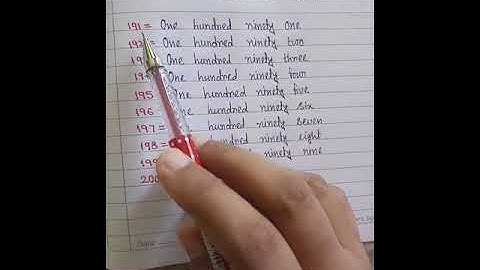 191 = One hundred ninety one
192 = One hundred ninety two
19 One hundred ninety three
19 One hundred ninety four
195 One hundred ninety five
196 hundred ninety six
197 = hundred ninety seven
198 = hundred ninety eight
199 ninety nine
200
Date